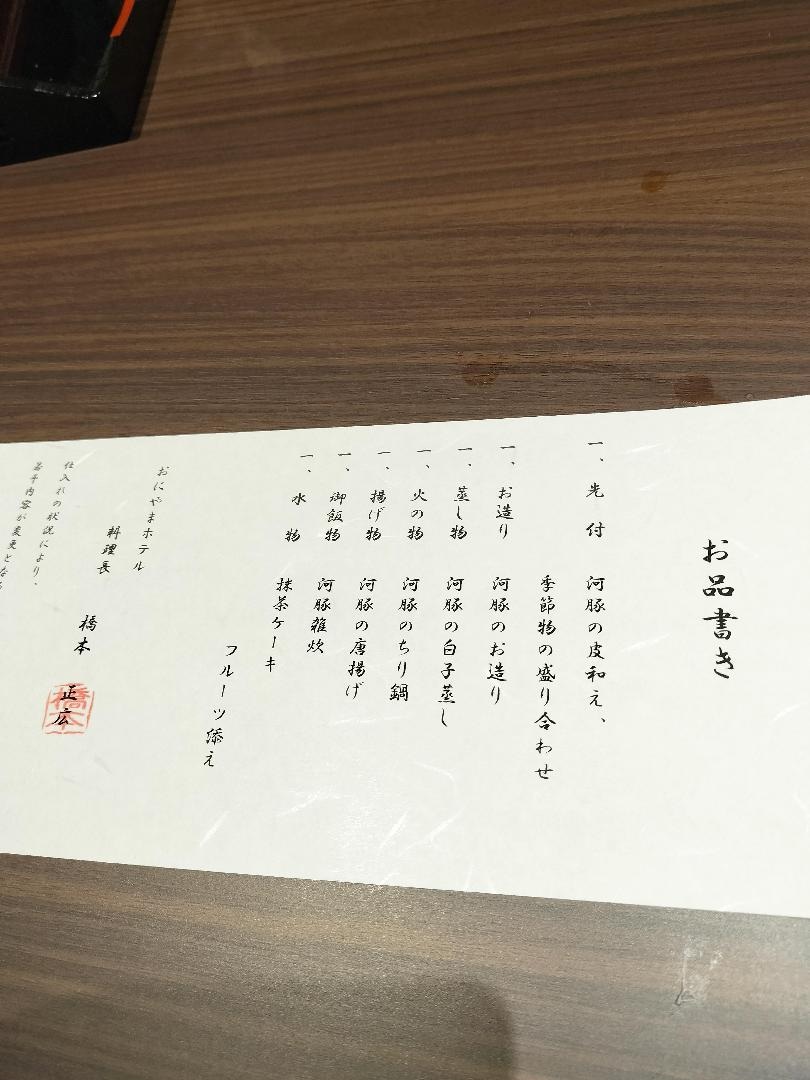 お品書き
一、先付 河豚の皮和え、
季節物の盛り合わせ
一、お造り 河豚のお造り
一、蒸し物 河豚の白子蒸し
一、火の物 河豚のちり鍋
一、揚げ物 河豚の唐揚げ
一、御飯物 河豚雑炊
一、水物 抹茶ケーキ
フルーツ添え
おにやまホテル
料理長
橋本 正広
橋本
仕入れの状況により、
若干内容が変更となる